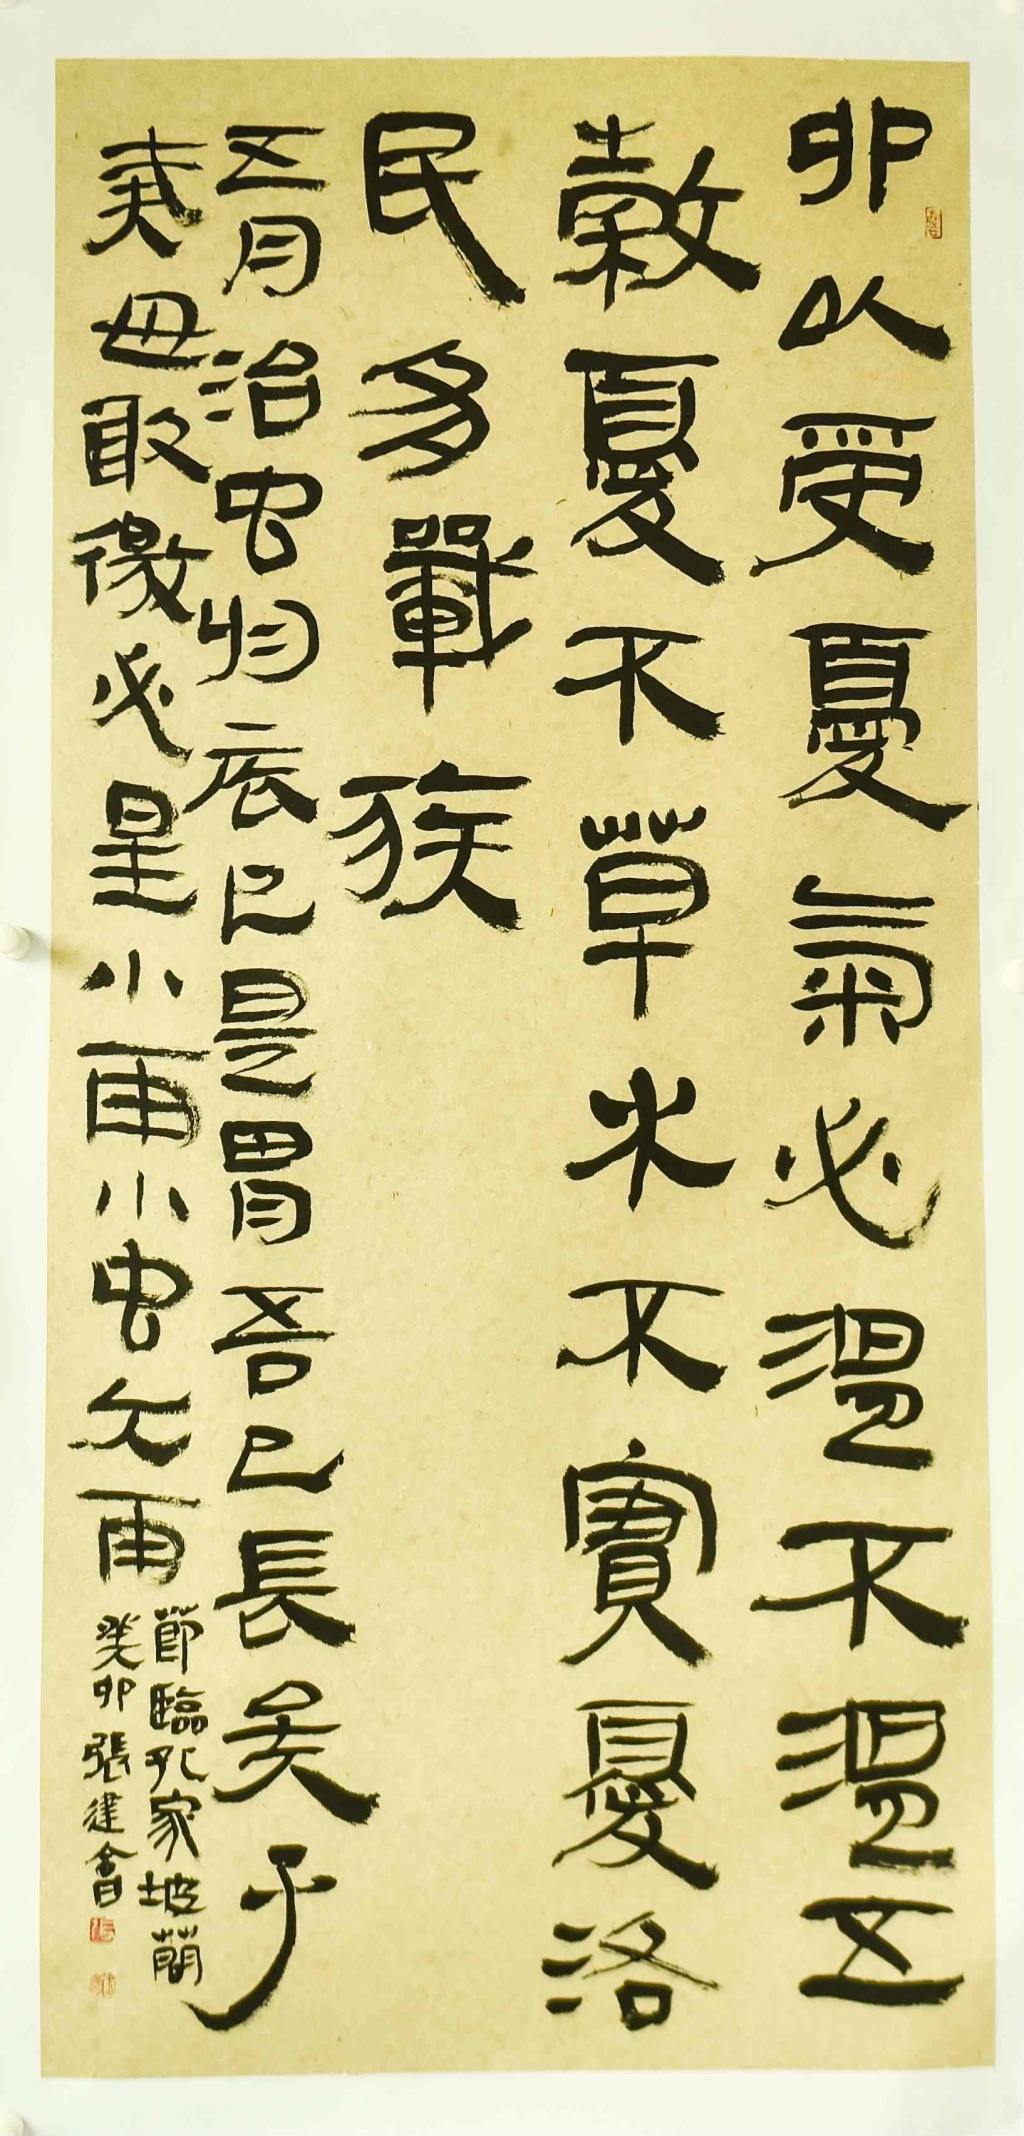 卯以受夏氣必温不温五
穀夏不草木不實夏洛
民多戰疾
五月治虫勿辰巳是胃吾已長矣子
毋敢微必星小雨小虫大雨
節臨孔家坡蕑
癸卯張建會